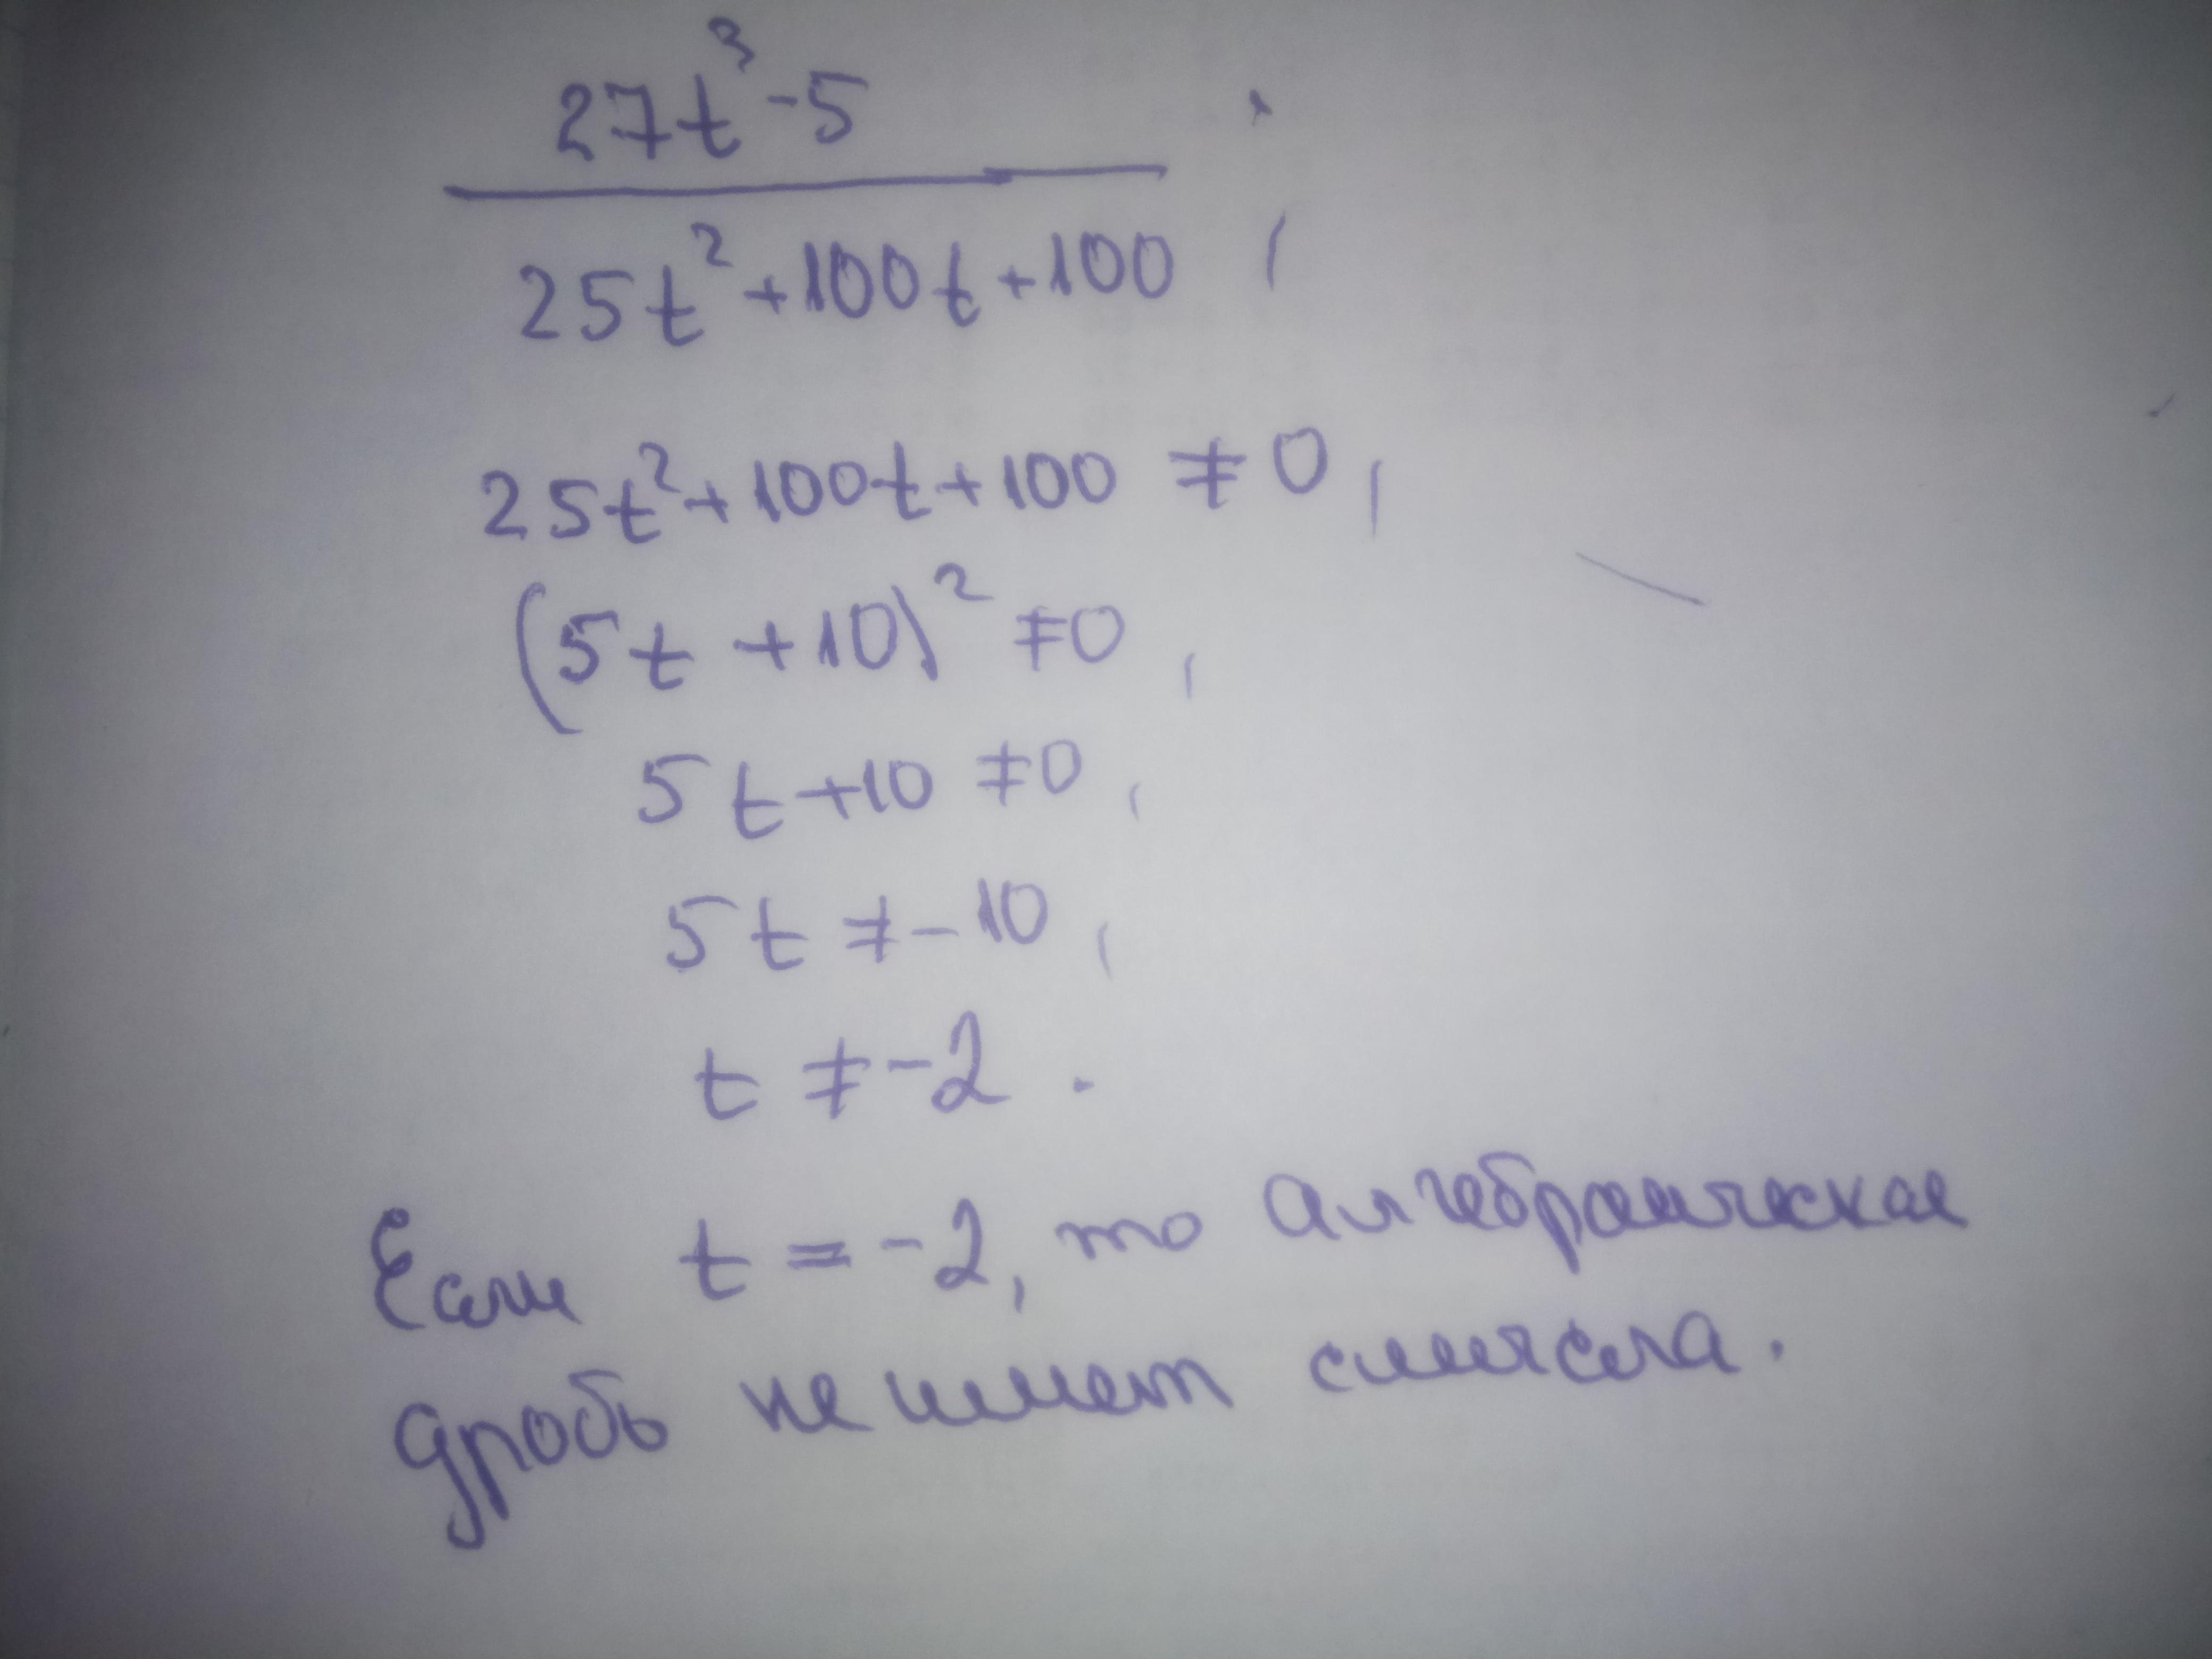 27t³-5
25t²+100t+100,
25t²+100t+100 ≠0,
(5t+10)² ≠0,
5t+10 ≠0,
5t ≠-10,
t ≠-2.
Если t = -2, то алгебраическая
дробь не имеет смысла.